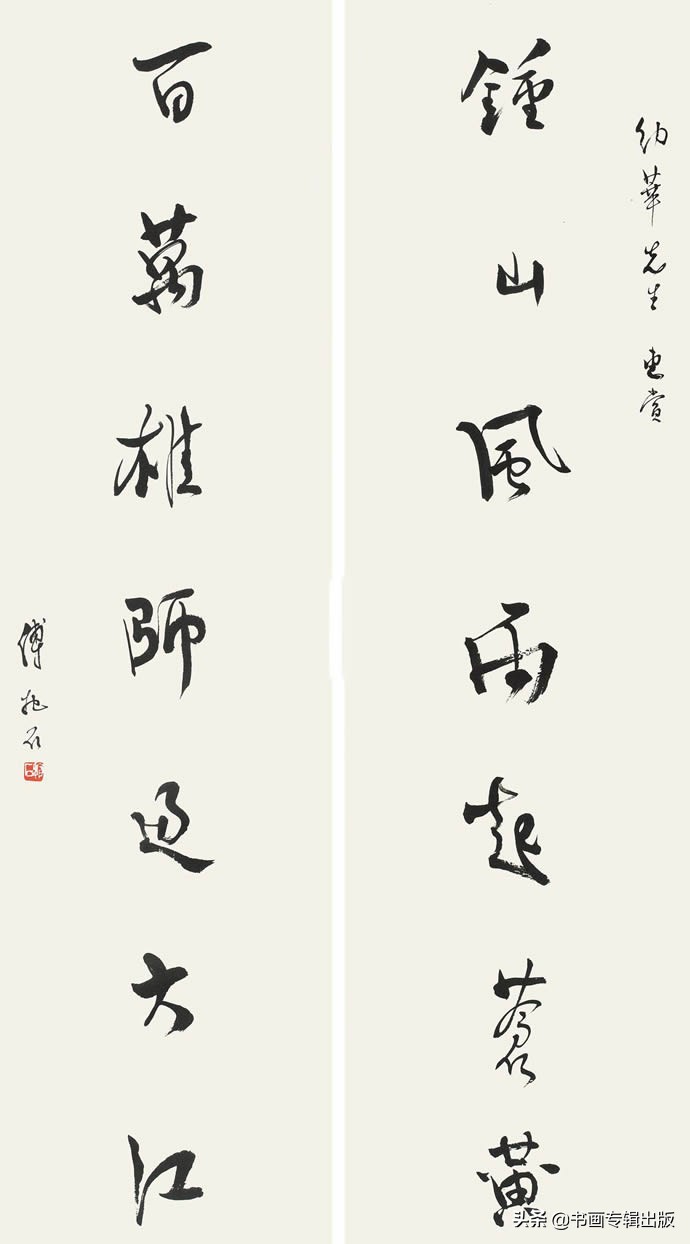 幼華先生 惠賞
鍾山風雨起蒼黃
百萬雄師過大江
傅抱石
头条 @书画专辑出版